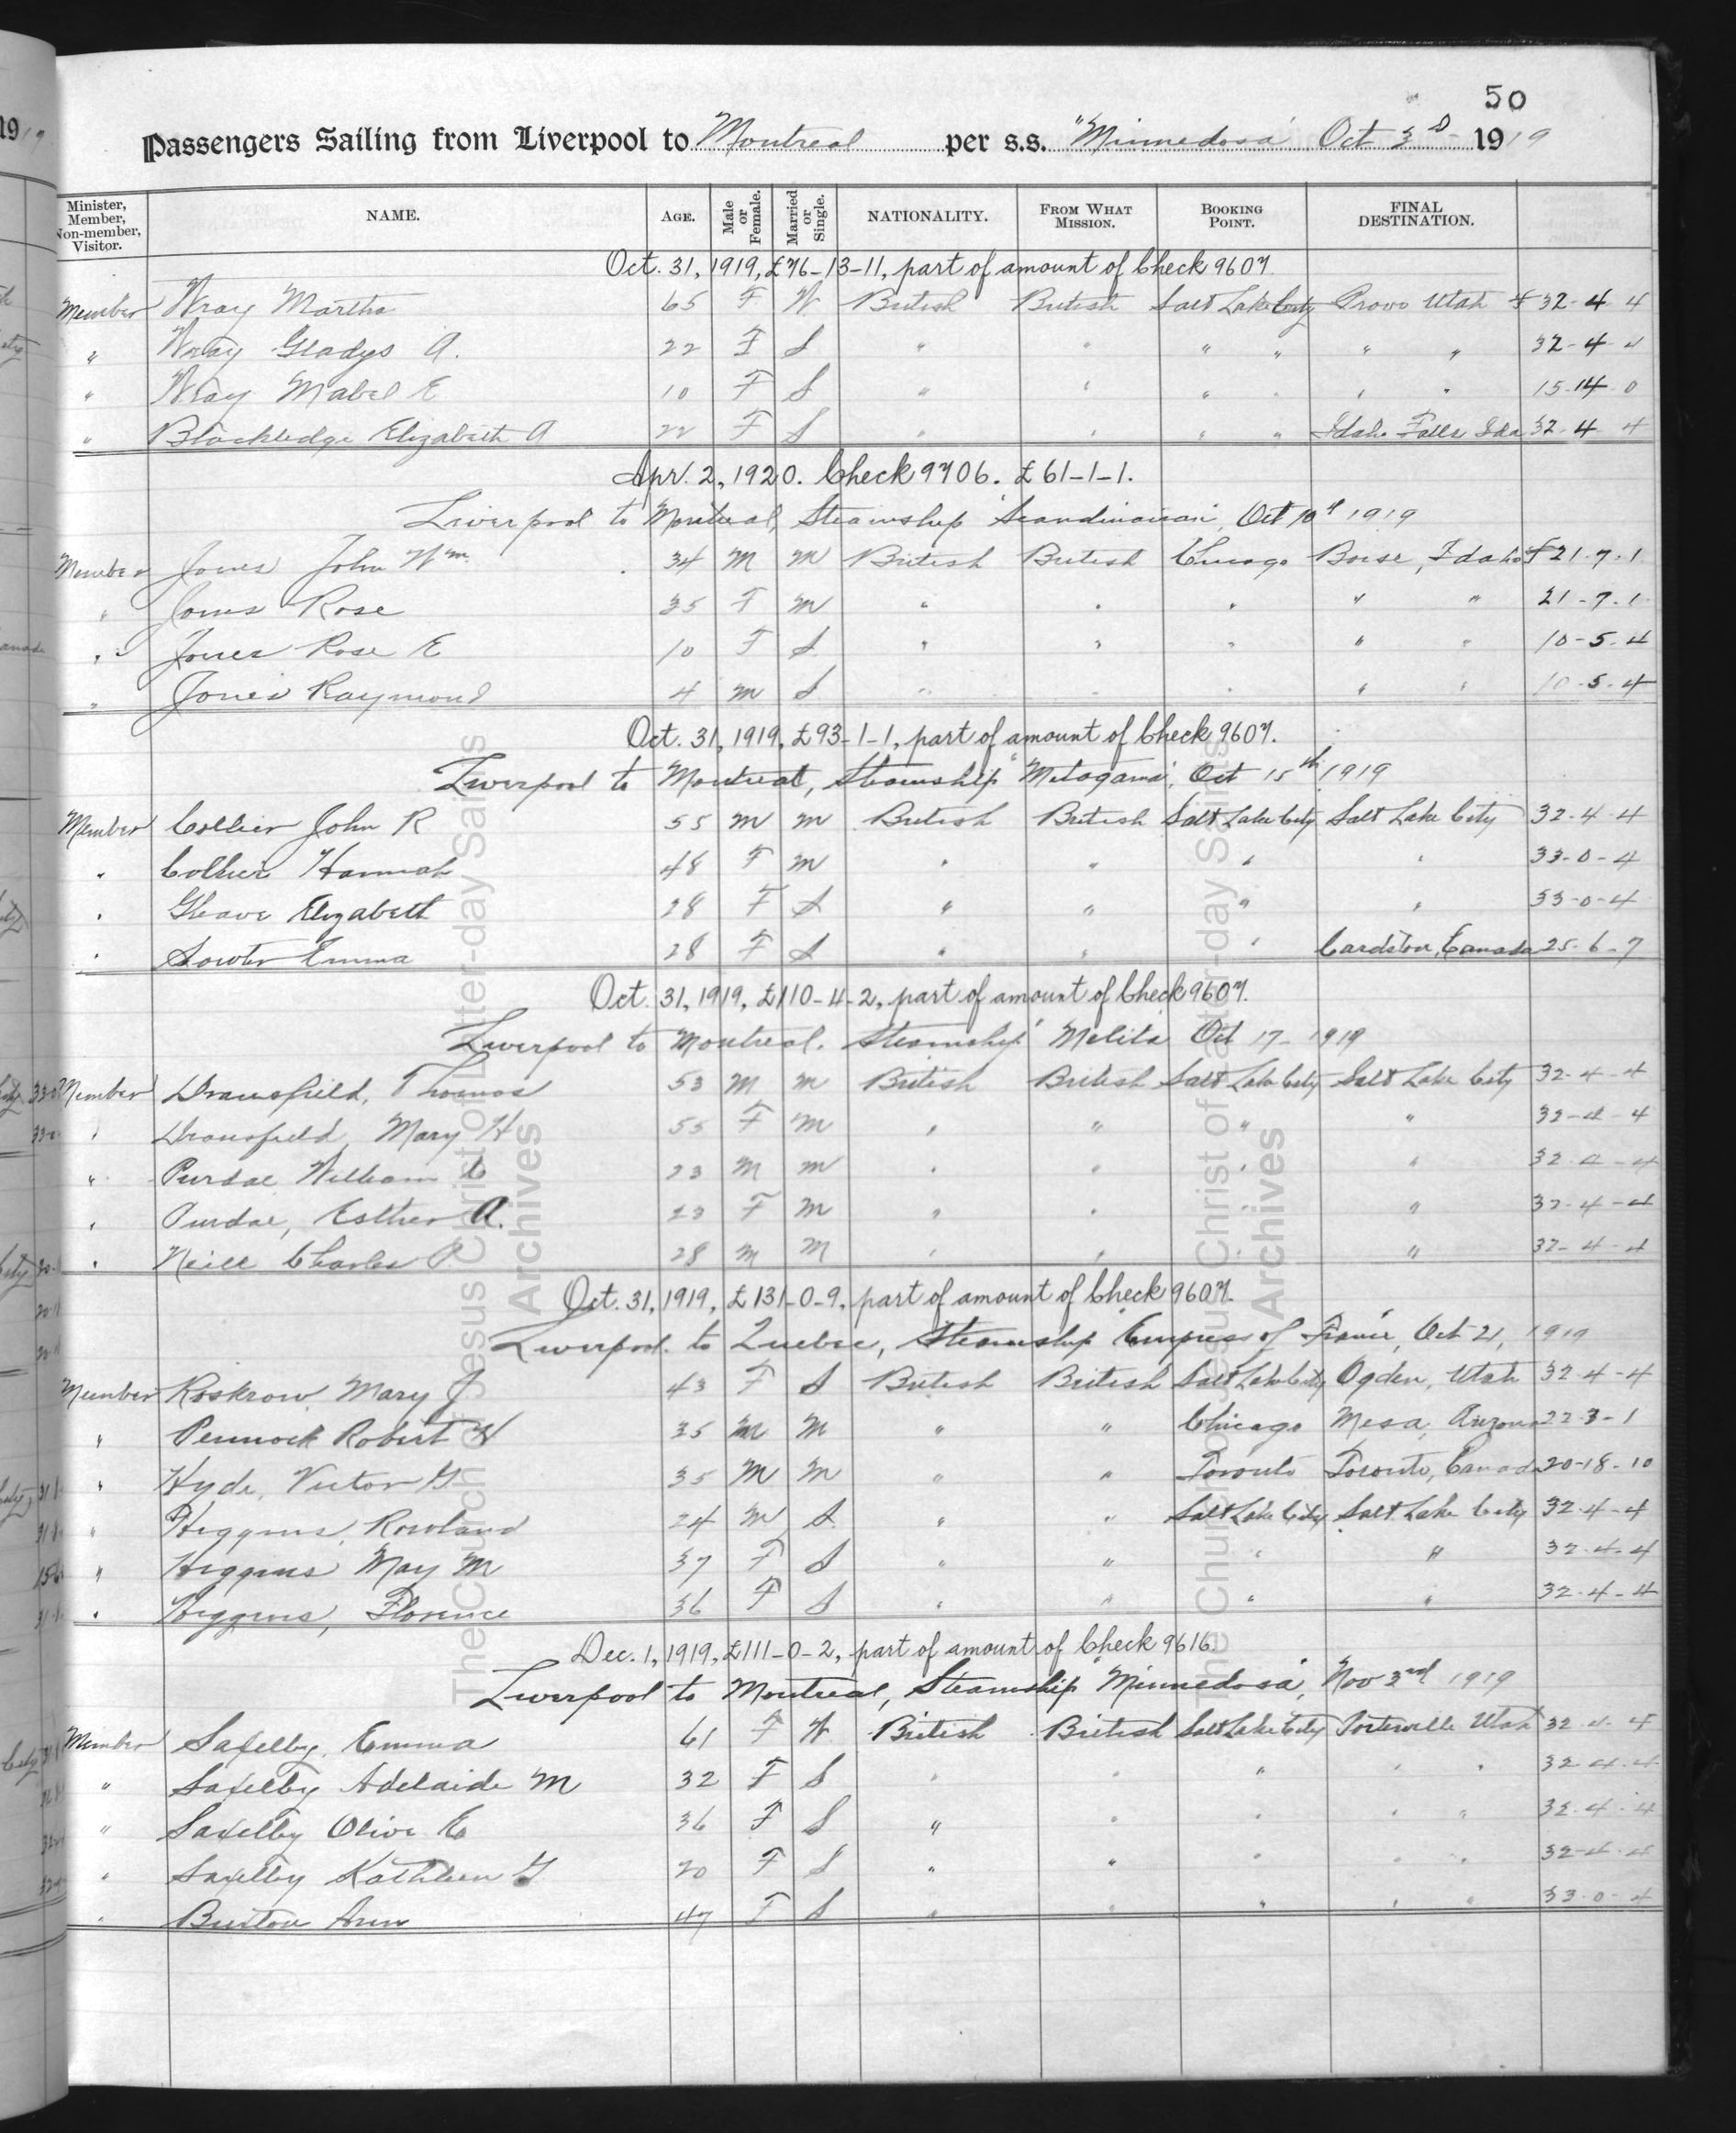 50
Passengers Sailing from Liverpool to Montreal per s.s. "Minnedosa" Oct 3d 1919
Minister, Member, Non-member, Visitor. NAME. AGE. Male or Female. Married or Single. NATIONALITY. FROM WHAT MISSION. BOOKING POINT. FINAL DESTINATION.
Oct. 31, 1919, £76-13-11, part of amount of Check 9607.
Member Wray Martha 65 F W British British Salt Lake City Provo Utah £ 32-4-4
" Wray Gladys A. 22 F S " " " " " " 32-4-4
" Wray Mabel E 10 F S " " " " " " 15-14-0
" Blackledge Elizabeth A 22 F S " " " " Idaho Falls Ida 32-4-4
Apr. 2, 1920. Check 9706. £61-1-1.
Liverpool to Montreal, Steamship "Scandinavian", Oct 10th 1919
Member Jones John Wm. 34 M M British British Chicago Boise, Idaho £21-7-1
" Jones Rose 35 F M " " " " " 21-7-1
" Jones Rose E 10 F S " " " " " 10-5-4
" Jones Raymond 4 M S " " " " " 10-5-4
Oct. 31, 1919, £93-1-1, part of amount of Check 9607.
Liverpool to Montreal, Steamship "Metagama", Oct 15th 1919
Member Collier John R 55 M M British British Salt Lake City Salt Lake City 32-4-4
" Collier Hannah 48 F M " " " " 33-0-4
" Gleave Elizabeth 28 F S " " " " 33-0-4
" Sowter Emma 28 F S " " " Cardston, Canada 25-6-7
Oct. 31, 1919, £110-4-2, part of amount of Check 9607.
Liverpool to Montreal. Steamship "Melita" Oct 17- 1919
Member Dransfield, Thomas 53 M M British British Salt Lake City Salt Lake City 32-4-4
" Dransfield, Mary H 55 F M " " " " 32-4-4
" Purdae William C 23 M M " " " " 32-4-4
" Purdae, Esther A. 23 F M " " " " 32-4-4
" Neill Charles P. 28 M M " " " " 32-4-4
Oct. 31, 1919, £131-0-9, part of amount of Check 9607.
Liverpool to Quebec, Steamship "Empress of France", Oct 21, 1919
Member Roskrow, Mary J 43 F S British British Salt Lake City Ogden, Utah 32-4-4
" Pennock Robert W 35 M M " " Chicago Mesa, Arizona 22-3-1
" Hyde, Victor G 35 M M " " Toronto Toronto, Canada 20-18-10
" Higgins, Rowland 24 M S " " Salt Lake City Salt Lake City 32-4-4
" Higgins May M 37 F S " " " " 32-4-4
" Higgins, Florence 36 F S " " " " 32-4-4
Dec. 1, 1919, £111-0-2, part of amount of Check 9616.
Liverpool to Montreal, Steamship "Minnedosa", Nov 3rd 1919
Member Saxelby, Emma 61 F W British British Salt Lake City Porterville Utah 32-4-4
" Saxelby Adelaide M 32 F S " " " " " 32-4-4
" Saxelby Olive E 36 F S " " " " " 32-4-4
" Saxelby Kathleen G 20 F S " " " " " 32-4-4
" Buxton Ann 47 F S " " " " " 33-0-4
The Church of Jesus Christ of Latter-day Saints
Archives
The Church of Jesus Christ of Latter-day Saints
Archives